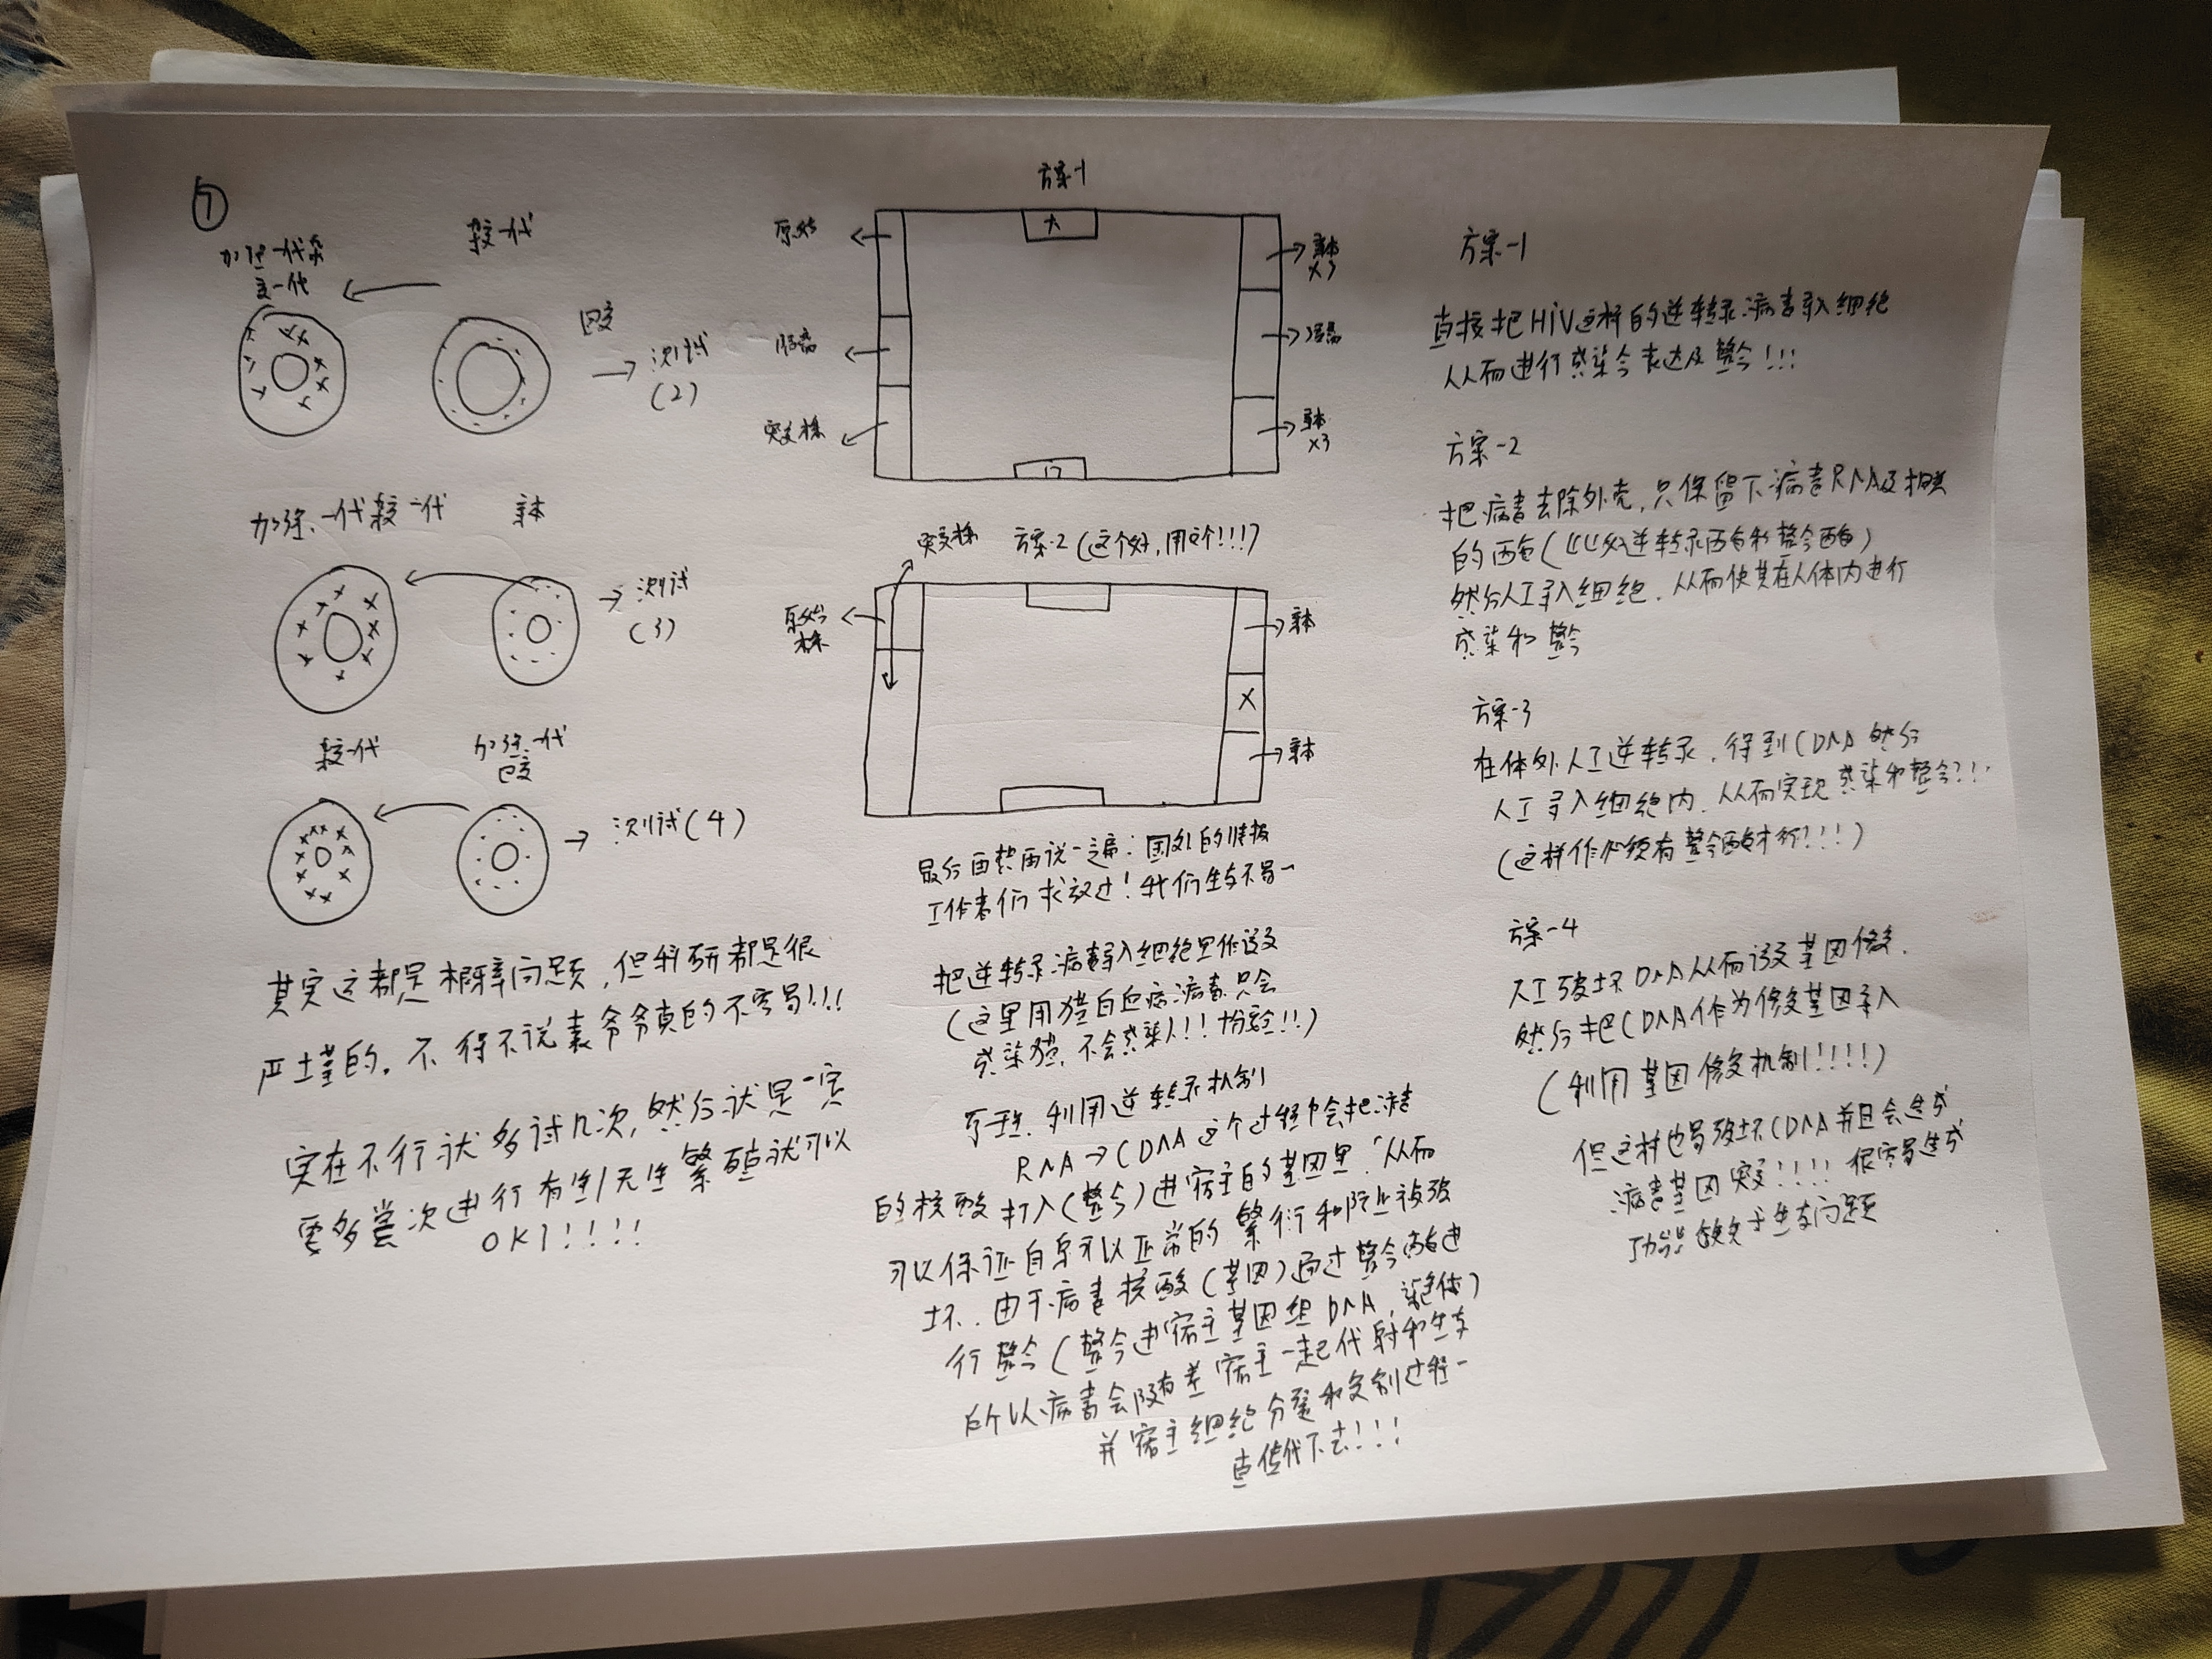 ⑦
加强一代杂
交一代
杂交一代
回交
→测试
(2)
加强一代杂交一代
亲本
→测试
(3)
杂交一代
加强一代
回交
→测试(4)
其实这都是概率问题,但科研都是很
严谨的。不得不说袁爷爷真的不容易!!!
实在不行就多试几次,然后就是一定
要多尝次进行有性/无性繁殖就可以
OK!!!!
方案-1
原始
突变株
亲本
×3
亲本
×3
门
突变株
方案-2(这个好,用这个!!!)
原始
株
亲本
X
亲本
最后再热再说一遍:国外的
工作者们求放过!我们生存不易~
把逆转录病毒导入细胞里作诱变
(这里用猫白血病病毒只会
感染猫,不会感染人!!!
原理:利用逆转录机制
RNA→CDNA这个过程中会把病毒
的核酸打入(整合)进宿主的基因里,从而
可以保证自身可以正常的繁衍和防止被破
坏.由于病毒核酸(基因)通过整合酶进
行整合(整合进宿主基因组DNA,染色体)
所以病毒会随着宿主一起代谢和生存
并宿主细胞分裂和复制过程一
直传代下去!!!
方案-1
直接把HIV这样的逆转录病毒导入细胞
从而进行感染令表达及整合!!!
方案-2
把病毒去除外壳,只保留下病毒RNA及相关
的酶(比如逆转录酶和整合酶)
然后人工导入细胞.从而使其在人体内进行
感染和整合
方案-3
在体外人工逆转录,得到CDNA然后
人工导入细胞内.从而实现感染和整合!!!
(这样作必须有整合酶才行!!!)
方案-4
人工破坏DNA从而诱发基因修复.
然后把CDNA作为修复基因导入
(利用基因修复机制!!!!)
但这样也易破坏CDNA并且会造成
病毒基因突变!!!!很容易造成
功能缺失于生存问题